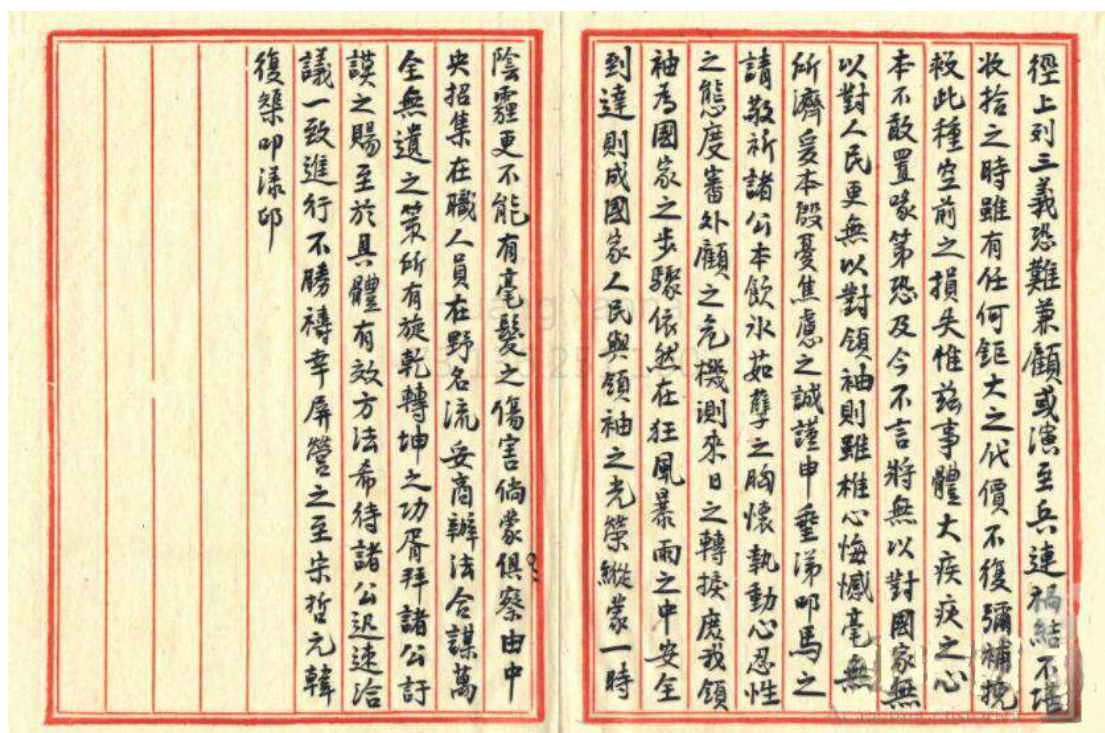 徑上列三義恐難兼顧或演至兵連禍結不堪
收拾之時雖有任何鉅大之代價不復彌補挽
救此種空前之損失惟茲事體大疾疚之心
本不敢置喙第恐及今不言將無以對國家無
以對人民更無以對領袖則雖椎心悔憾毫無
所濟爰本殷憂焦慮之誠謹申垂涕叩馬之
請敬祈諸公本飲冰茹孽之胸懷執動心忍性
之態度審外顧之危機測來日之轉捩庶我領
袖為國家之步驟依然在狂風暴雨之中安全
到達則成國家人民與領袖之光榮縱蒙一時
陰霾更不能有毫髮之傷害倘蒙俱察由中
央招集在職人員在野名流妥商辦法合謀萬
全無遺之策所有旋乾轉坤之功胥拜諸公訏
謨之賜至於具體有效方法希待諸公迅速洽
議一致進行不勝禱幸屏營之至宋哲元韓
復榘叩漾印